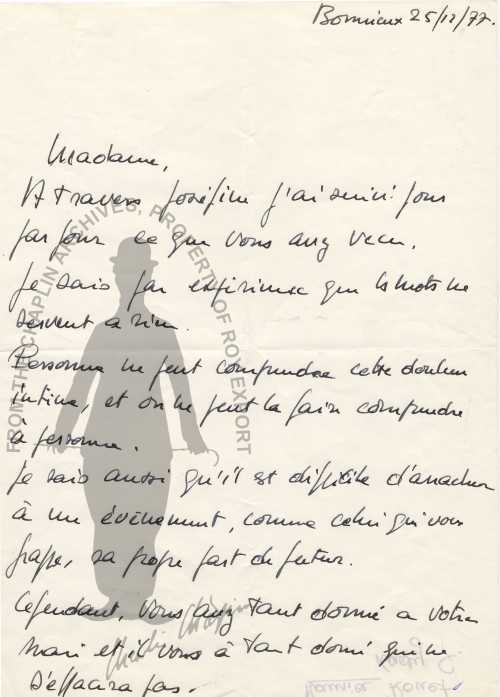 Bonnieux 25/12/77.
Madame,
A travers Joséfine j'ai suivi jour
par jour ce que vous avez vécu.
Je sais par expérience que les mots ne
servent à rien.
Personne ne peut comprendre cette douleur
intime, et on ne peut la faire comprendre
à personne.
Je sais aussi qu'il est difficile d'arracher
à un événement, comme celui qui vous
frappe, sa propre part de futur.
Cependant, vous avez tant donné à votre
mari et il vous à tant donné qui ne
s'effacera pas.
FROM THE CHAPLIN ARCHIVES, PROPERTY OF ROY EXPORT
Charlie Chaplin